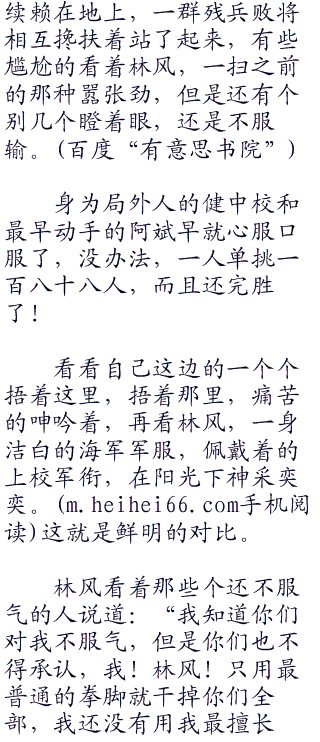 续赖在地上，一群残兵败将
相互搀扶着站了起来，有些
尴尬的看着林风，一扫之前
的那种嚣张劲，但是还有个
别几个瞪着眼，还是不服
输。(百度“有意思书院”)
身为局外人的健中校和
最早动手的阿斌早就心服口
服了，没办法，一人单挑一
百八十八人，而且还完胜
了！
看看自己这边的一个个
捂着这里，捂着那里，痛苦
的呻吟着，再看林风，一身
洁白的海军军服，佩戴着的
上校军衔，在阳光下神采奕
奕。(m.heihei66.com手机阅
读)这就是鲜明的对比。
林风看着那些个还不服
气的人说道：“我知道你们
对我不服气，但是你们也不
得承认，我！林风！只用最
普通的拳脚就干掉你们全
部，我还没有用我最擅长